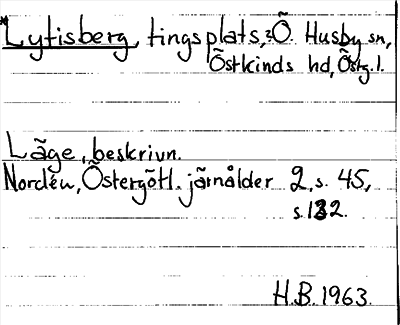 *Lytisberg, tingsplats, Ö. Husby sn,
Östkinds hd, Östg.l.
Läge, beskrivn.
Nordén, Östergötl. järnålder 2, s. 45,
s. 132.
H.B. 1963.